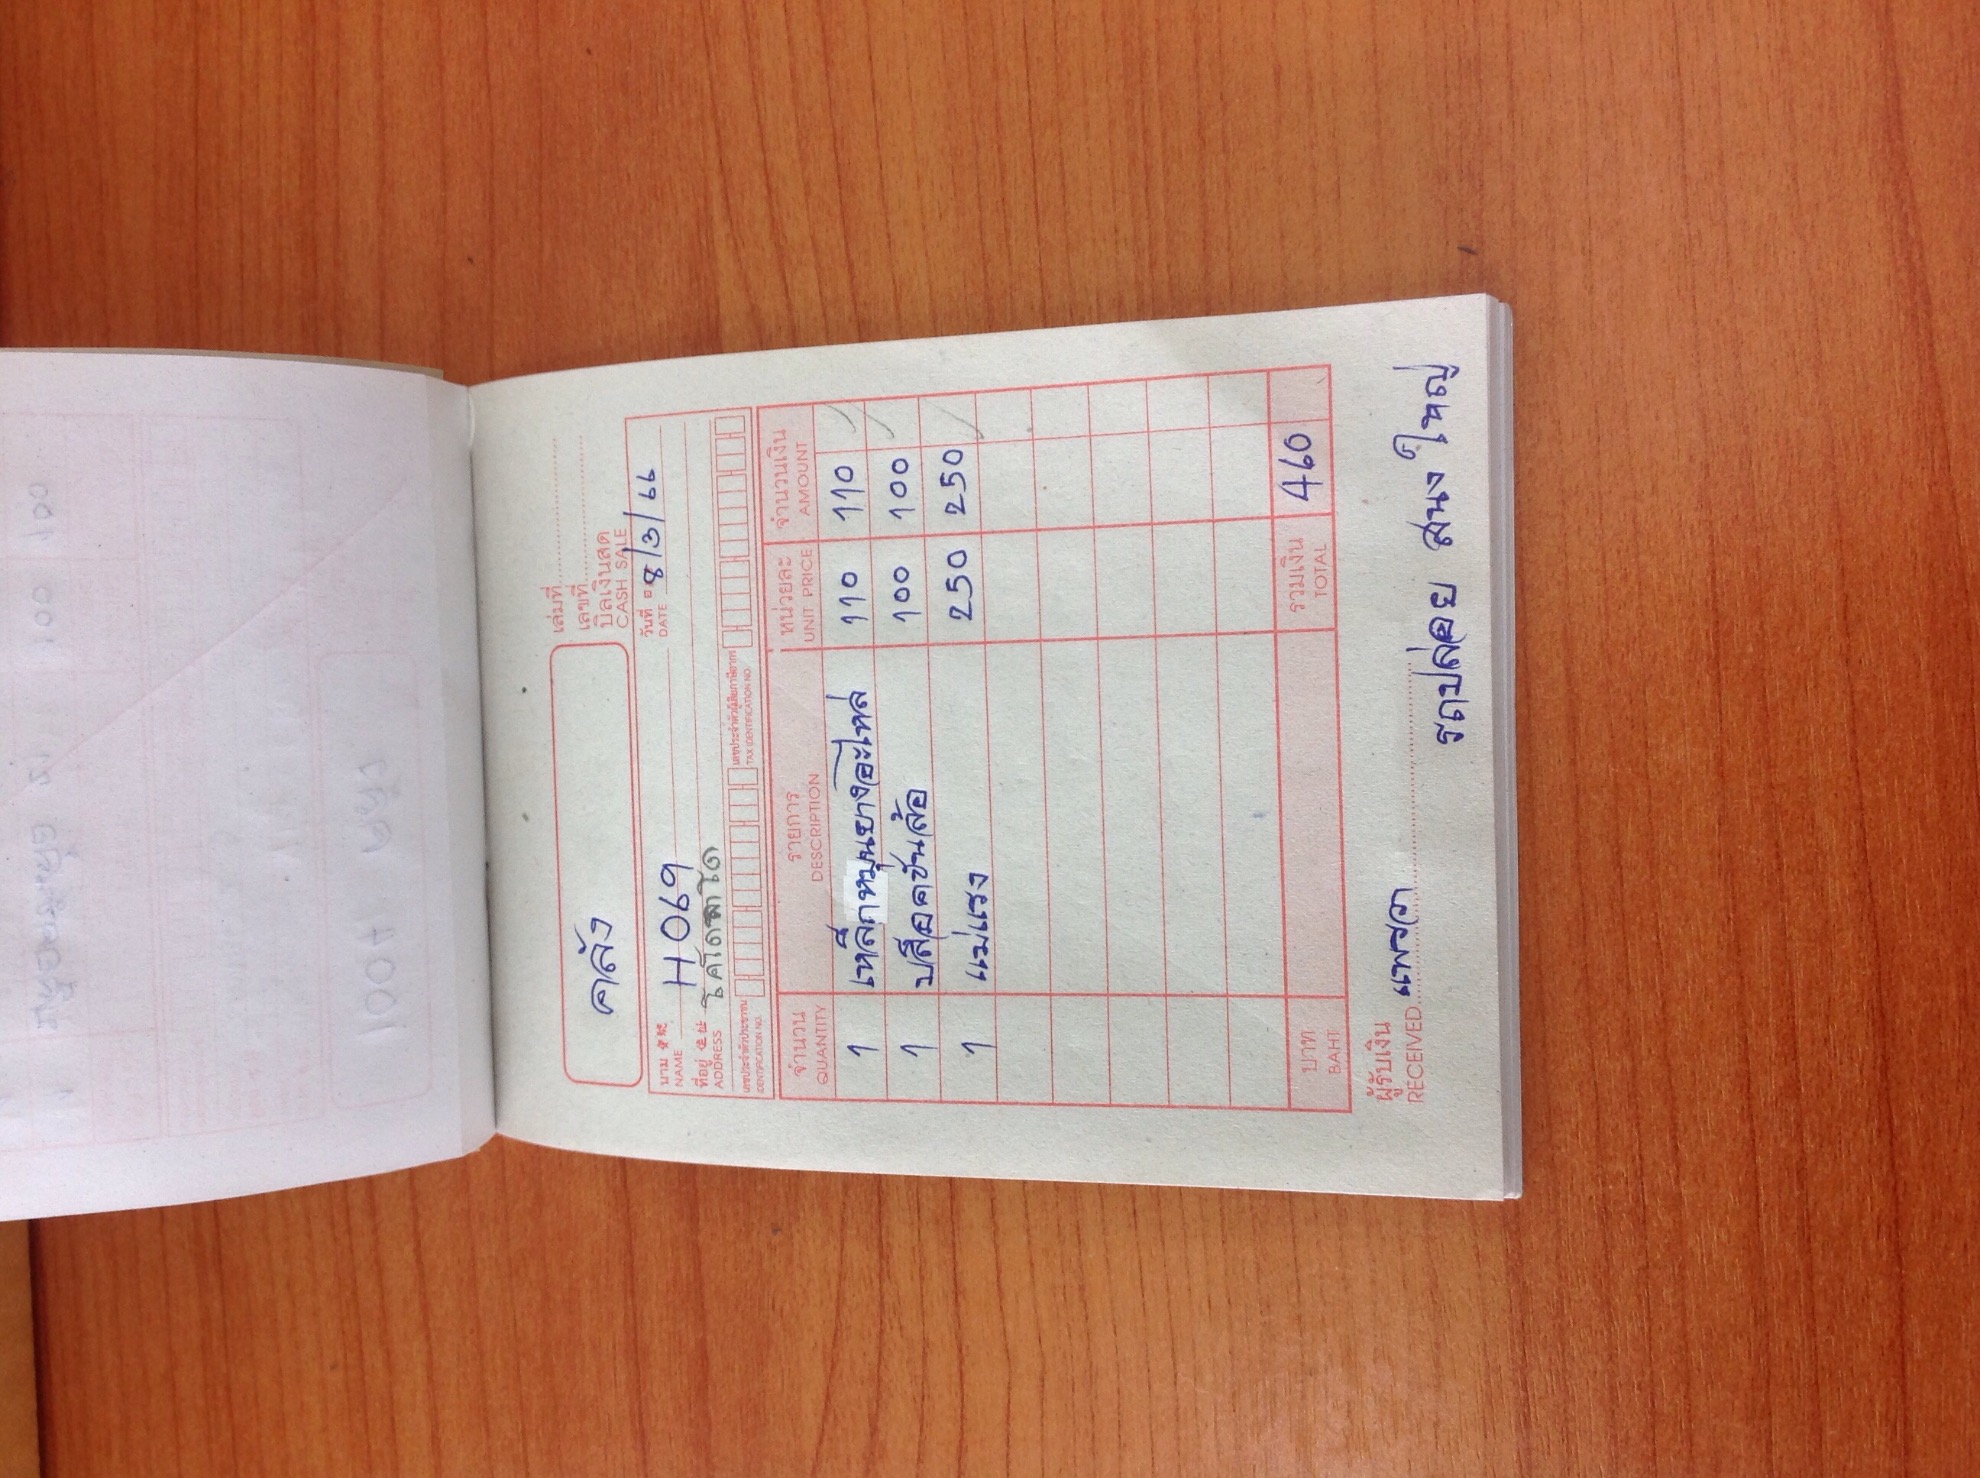 คลัง
เล่มที่
เลขที่
บิลเงินสด
CASH SALE
นาม
NAME
H069
วันที่ 8/3/66
DATE
ที่อยู่
ADDRESS
โคโดลาโด
เลขประจำตัวประชาชน
IDENTIFICATION NO.
เลขประจำตัวผู้เสียภาษีอากร
TAX IDENTIFICATION NO.
จำนวน รายการ หน่วยละ จำนวนเงิน
QUANTITY DESCRIPTION UNIT PRICE AMOUNT
1 เหล็กหมุนยางอะไหล่ 110 110
1 บล๊อคขันล้อ 100 100
1 แม่แรง 250 250
บาท รวมเงิน 460
BAHT TOTAL
ผู้รับเงิน
RECEIVED แพรวา
รถปล่อย สนง ใหญ่